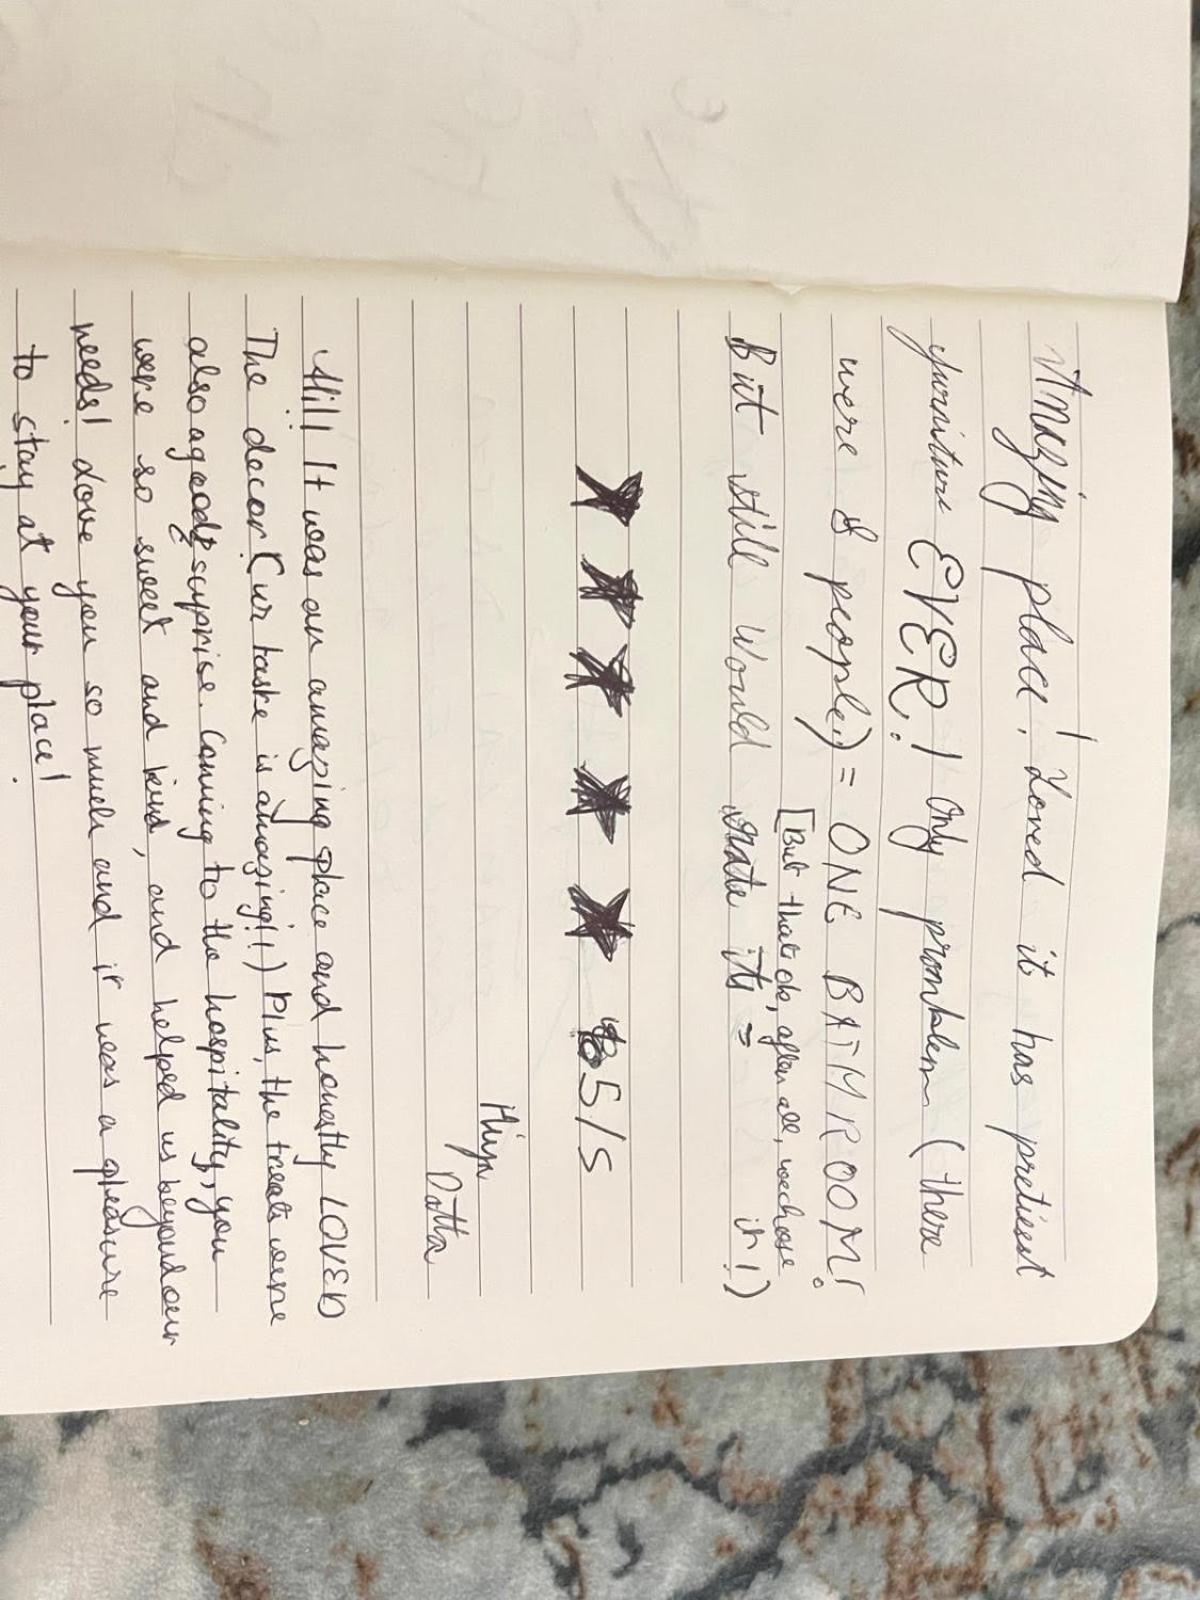 Amazing place! Loved it has pretiest
furniture EVER! Only promblem (there
were 8 people) = ONE BATHROOM!
[But thats ok, after all, we chose
it!)
But still Would rate it =
★ ★ ★ ★ ★ 5/5
Datta
Hi!! It was an amazing place and honestly LOVED
The decor (ur taske is amazing!!) Plus, the treats were
also a good suyprise. Coming to the hospitality, you
were so sweet and kind, and helped us beyond our
needs! Love you so much and it was a pleasure
to stay at your place!